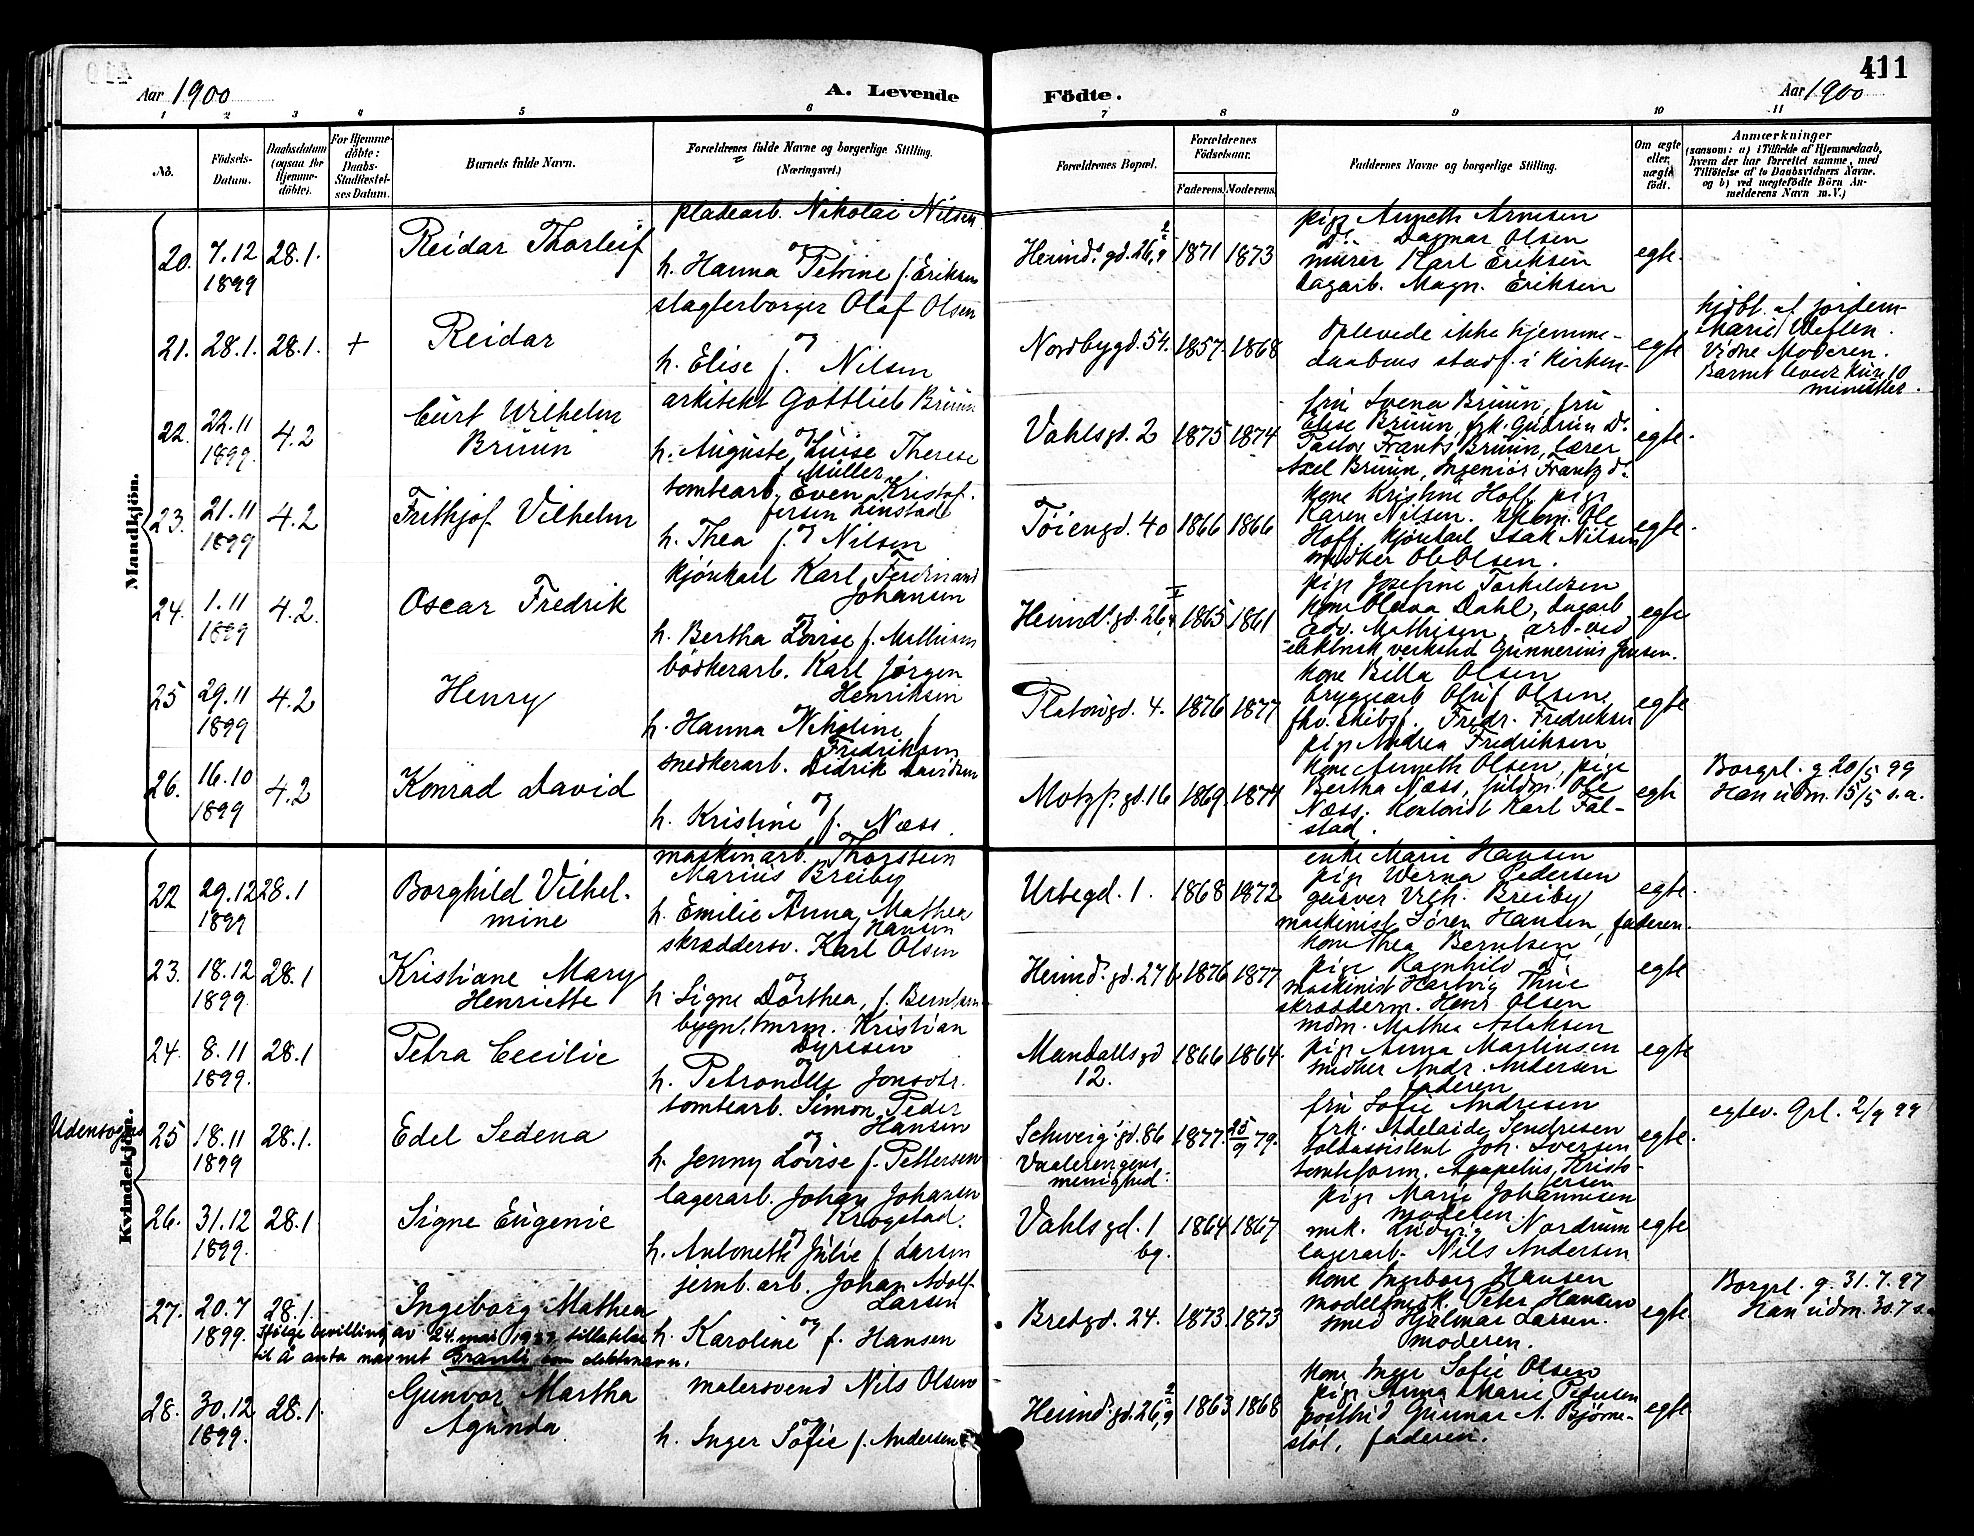 411
Aar 1900
A. Levende
Födte.
Aar 1900
1 2 3 4 5 6 7 8 9 10 11
No.
Födsels-
Datum.
Daabsdatum
(ogsaa for
Hjemme-
döbte).
For Hjemme-
döbte:
Daabs-
Stadfæstel-
ses Datum.
Barnets fulde Navn.
Forældrenes fulde Navne og borgerlige Stilling.
(Næringsvei.)
Forældrenes Bopæl.
Forældrenes
Födselsaar.
Faderens.
Moderens.
Faddernes Navne og borgerlige Stilling.
Om ægte
eller
uægte
födt.
Anmærkninger
(saasom: a) i Tilfælde af Hjemmedaab,
hvem der har forrettet samme, med
Tilföielse af to Daabsvidners Navne,
og b) ved uægtefödte Börn An-
melderens Navn m. V.)
Mandkjön.
20.
7.12
1899
28.1.
Reidar Thorleif
pladearb. Nikolai Nilsen
og
h. Hanna Petrine f. Eriksen
Heimd. gd. 26,
1871
1873
pige Anneth Arnesen
Do. Dagmar Olsen
murer Karl Eriksen
dagarb. Magn. Eriksen
egte.
21.
28.1.
28.1.
+
Reidar
slagterborger Olaf Olsen
og
h. Elise f. Nilsen
Nordbygd. 54.
1857.
1868
Oplevede ikke hjemme-
daabens stadf. i kirken.
egte
hjdbt. af jordem.
Marie Weflen.
Vidne Moderen.
Barnet levede kun 10
minutter.
22.
22.11
1899.
4.2
Curt Wilhelm
Bruun
arkitekt Gottlieb Bruun
og
h. Auguste Luise Therese
f. Müller
Vahlsgd. 2
1875
1874
fru Svena Bruun, fru
Elise Bruun, frk. Gudrun Do.
Pastor Frants Bruun, lærer
Axel Bruun, Ingeniör Frantz do.
egte.
23.
21.11
1899
4.2
Frithjof Vilhelm
tomtearb. Even Kristof-
fersen Lenstad
og
h. Thea f. Nilsen
Töiengd. 40
1866
1866
kone Kristine Hoff, pige
Karen Nilsen. Ole
Hoff, kjörekarl Isak Nilsen
snedker Ole Olsen.
egte.
24.
1.11
1899
4.2.
Oscar Fredrik
kjörekarl Karl Ferdinand
Johansen
og
h. Bertha Lovise f. Mathisen
Heimd. gd. 26,
1865
1861
pige Josefine Torkildsen
kone Olava Dahl, dagarb
Adv. Mathisen, arb. ved
elektrisk verksted Gunnerius Jensen.
egte
25
29.11
1899
4.2
Henry
bödkerarb. Karl Jörgen
Henriksen
og
h. Hanna Nikoline f.
Fredriksen
Platousgd. 4.
1876
1877
kone Billa Olsen
bryggearb Oluf Olsen.
fhv. skibsf. Fredr. Fredriksen
pige Andrea Fredriksen
egte
26.
16.10
1899
4.2
Konrad David
snedkerarb. Didrik Davidsen
og
h. Kristine f. Næss.
Motzf. gd. 16
1869.
1874
kone Anneth Olsen, pige
Bertha Næss, guldm. Ole
Næss. Kontorist Karl Fal-
stad.
egte
Borgrl. g. 20/5 99
Han udm. 15/5 s.a.
Kvindekjön.
22
29.12
1899
28.1
Borghild Vilhel-
mine
maskinarb. Thorstein
Marius Breiby
og
h. Emilie Anna Mathea
f. Hansen
Urtegd. 1.
1868
1872
enke Marie Hansen
pige Werna Pedersen
graver Vilh. Breiby
maskinist Sören Hansen, faderen.
egte.
23.
18.12
1899.
28.1
Kristiane Mary
Henriette
skræddersv. Karl Olsen
og
h. Signe Dorthea, f. Berntsen
Heimd. gd. 27b
1876
1877
kone Thea Berntsen
pige Ragnhild do
maskinist Hartvig Thue
skrædderm. Henr. Olsen
egte
24.
8.11
1899.
28.1
Petra Cecilie
bygn. tmrm. Kristian
Dyresen
og
h. Petronelle Jonsdtr.
Mandallsgd
12.
1866
1864.
mdm. Mathea Aslaksen
pige Anna Martinsen
snedker Andr. Andersen
faderen
egte
Udensogns
25
18.11
1899
28.1.
Edel Sedena
tomtearb. Simon Peder
Hansen
og
h. Jenny Lovise f. Pettersen
Schweig. gd. 86
Vaalerengens
menighed.
1877.
25/9 79.
fru Sofie Andresen
frk. Adelaide Syndresen
toldassistent Joh. Iversen
tomteform. Agapetus Kristo-
fersen
egte.
egtev. Grl. 2/9 99
26.
31.12
1899.
28.1
Signe Eugenie
lagerarb. Johan Johansen
Krogstad.
og
h. Antonette Julie f. Larsen
Vahlsgd. 1
bg.
1864
1867
pige Marie Johannesen
moderen.
mek. Ludvig Nordrum
lagerarb. Nils Andersen
egte
27.
20.7
1899.
28.1.
Ingeborg Mathea
Ifölge bevilling av 24. mai 1927 tillatelse
til å anta navnet Granli som slektsnavn.
jernb. arb. Johan Adolf
Larsen
og
h. Karoline f. Hansen
Bredgd. 24.
1873.
1873
kone Ingeborg Hansen
modelsnedk. Peter Hansen
smed Hjalmar Larsen.
moderen.
egte.
Borgrl. g. 31.7.97
Han udm. 30.7 s.a.
28.
30.12
1899.
28.1.
Gunvor Martha
Agunda
malersvend Nils Olsen
og
h. Inger Sofie f. Andersen
Heimd. gd. 26,
1863
1868
kone Inger Sofie Olsen
pige Anna Marie Pedersen
postbud Gunnar A. Björne-
stöl, faderen.
egte